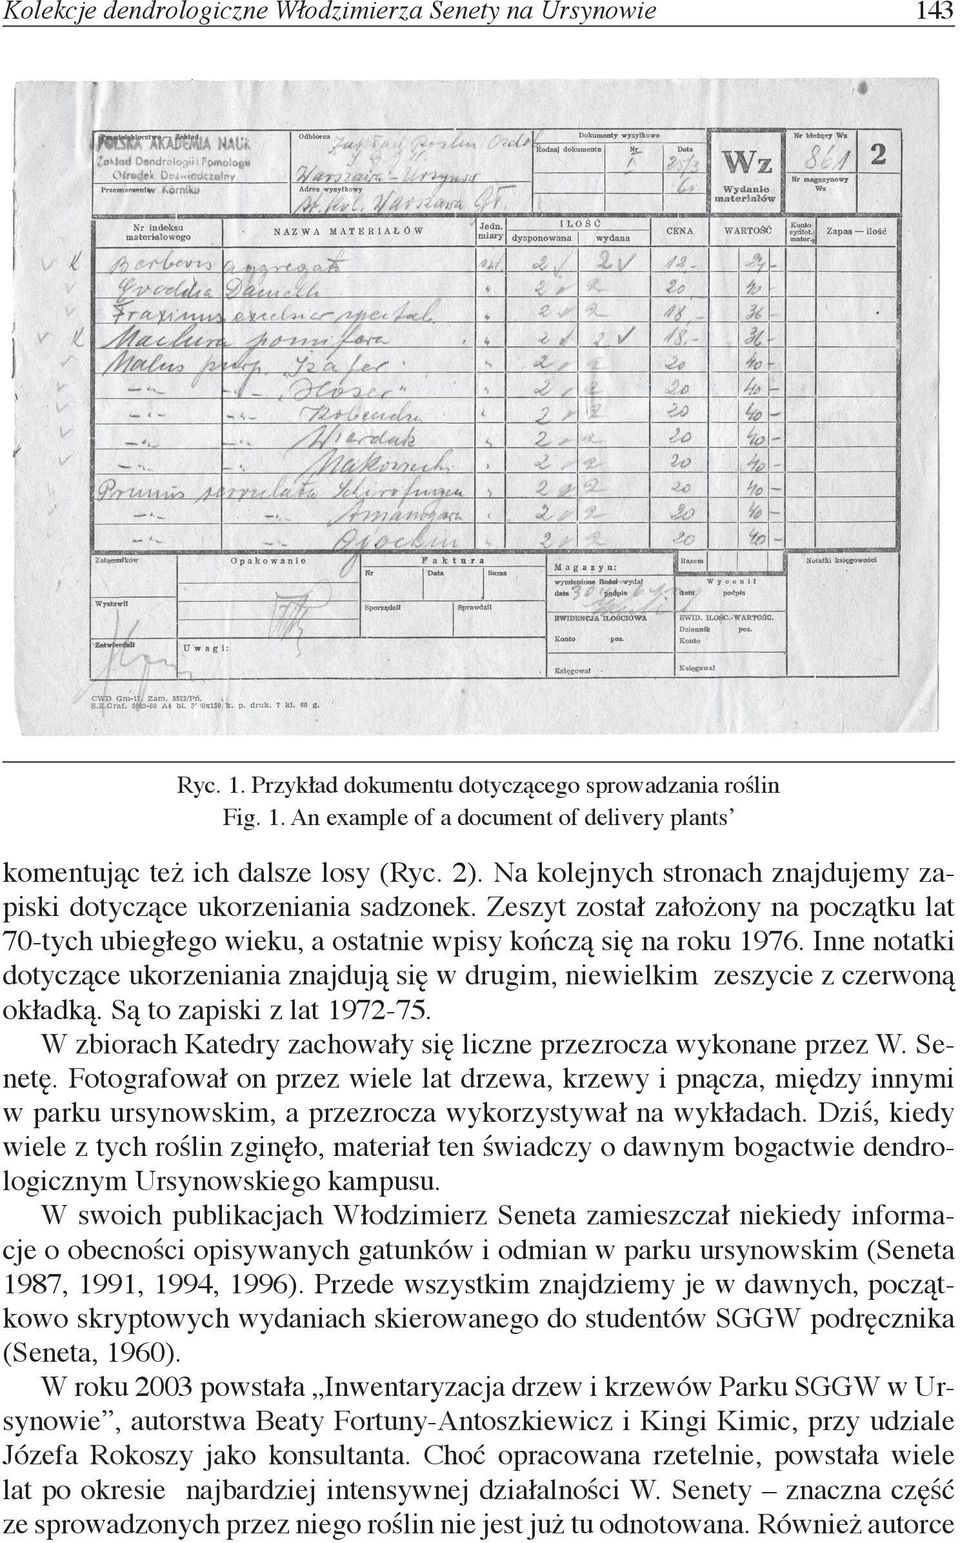 Kolekcje dendrologiczne Włodzimierza Senety na Ursynowie 143
POLSKA AKADEMIA NAUK
Zakład Dendrologii i Pomologii
Ośrodek Doświadczalny
Przeznaczenie Kórnik
Odbiorca Zakład Roślin Ozdob
S.G.G.W.
Warszawa - Ursynów
Adres wysyłkowy
Dokumenty wysyłkowe
Rodzaj dokumentu Nr Data
Wz
Wydanie
materiałów
Nr bieżący Wz
861 2
Nr magazynowy
Wz
Nr indeksu
materiałowego
NAZWA MATERIAŁÓW
Jedn.
miary
ILOŚĆ
dysponowana wydana
CENA WARTOŚĆ
Konto
syntet.
mater.
Zapas — ilość
K Berberis aggregata szt. 2 2 12.- 24-
Evodia Danielli " 2 2 20 40-
Fraxinus excelsior spectab. " 2 2 18,- 36-
K Maclura pomifera " 2 2 18.- 36-
Malus purp. Szafer " 2 2 20 40-
-"- -"- "Hoser" " 2 2 20 40-
-"- -"- 2 2 20 40-
-"- -"- Wierdak " 2 2 20 40-
-"- -"- Makowiecki " 2 2 20 40-
Prunus serrulata " 2 2 20 40-
-"- -"- Amanogawa " 2 2 20 40-
-"- -"- 2 2 20 40-
Załączników
Opakowanie
Faktura
Nr Data Suma
Magazyn:
wymienione ilości wydał
data podpis
Razem
Wycenił
data podpis
Notatki księgowości
Wystawił
Sporządził Sprawdził
EWIDENCJA ILOŚCIOWA
Konto poz.
EWID. ILOŚC.-WARTOŚC.
Dziennik poz.
Konto
Zatwierdził
Uwagi:
Księgował
Księgował
CWD Gm-17, Zam. 5522/Pń.
Ryc. 1. Przykład dokumentu dotyczącego sprowadzania roślin
Fig. 1. An example of a document of delivery plants’
komentując też ich dalsze losy (Ryc. 2). Na kolejnych stronach znajdujemy za-
piski dotyczące ukorzeniania sadzonek. Zeszyt został założony na początku lat
70-tych ubiegłego wieku, a ostatnie wpisy kończą się na roku 1976. Inne notatki
dotyczące ukorzeniania znajdują się w drugim, niewielkim zeszycie z czerwoną
okładką. Są to zapiski z lat 1972-75.
W zbiorach Katedry zachowały się liczne przezrocza wykonane przez W. Se-
netę. Fotografował on przez wiele lat drzewa, krzewy i pnącza, między innymi
w parku ursynowskim, a przezrocza wykorzystywał na wykładach. Dziś, kiedy
wiele z tych roślin zginęło, materiał ten świadczy o dawnym bogactwie dendro-
logicznym Ursynowskiego kampusu.
W swoich publikacjach Włodzimierz Seneta zamieszczał niekiedy informa-
cje o obecności opisywanych gatunków i odmian w parku ursynowskim (Seneta
1987, 1991, 1994, 1996). Przede wszystkim znajdziemy je w dawnych, począt-
kowo skryptowych wydaniach skierowanego do studentów SGGW podręcznika
(Seneta, 1960).
W roku 2003 powstała „Inwentaryzacja drzew i krzewów Parku SGGW w Ur-
synowie”, autorstwa Beaty Fortuny-Antoszkiewicz i Kingi Kimic, przy udziale
Józefa Rokoszy jako konsultanta. Choć opracowana rzetelnie, powstała wiele
lat po okresie najbardziej intensywnej działalności W. Senety – znaczna część
ze sprowadzonych przez niego roślin nie jest już tu odnotowana. Również autorce